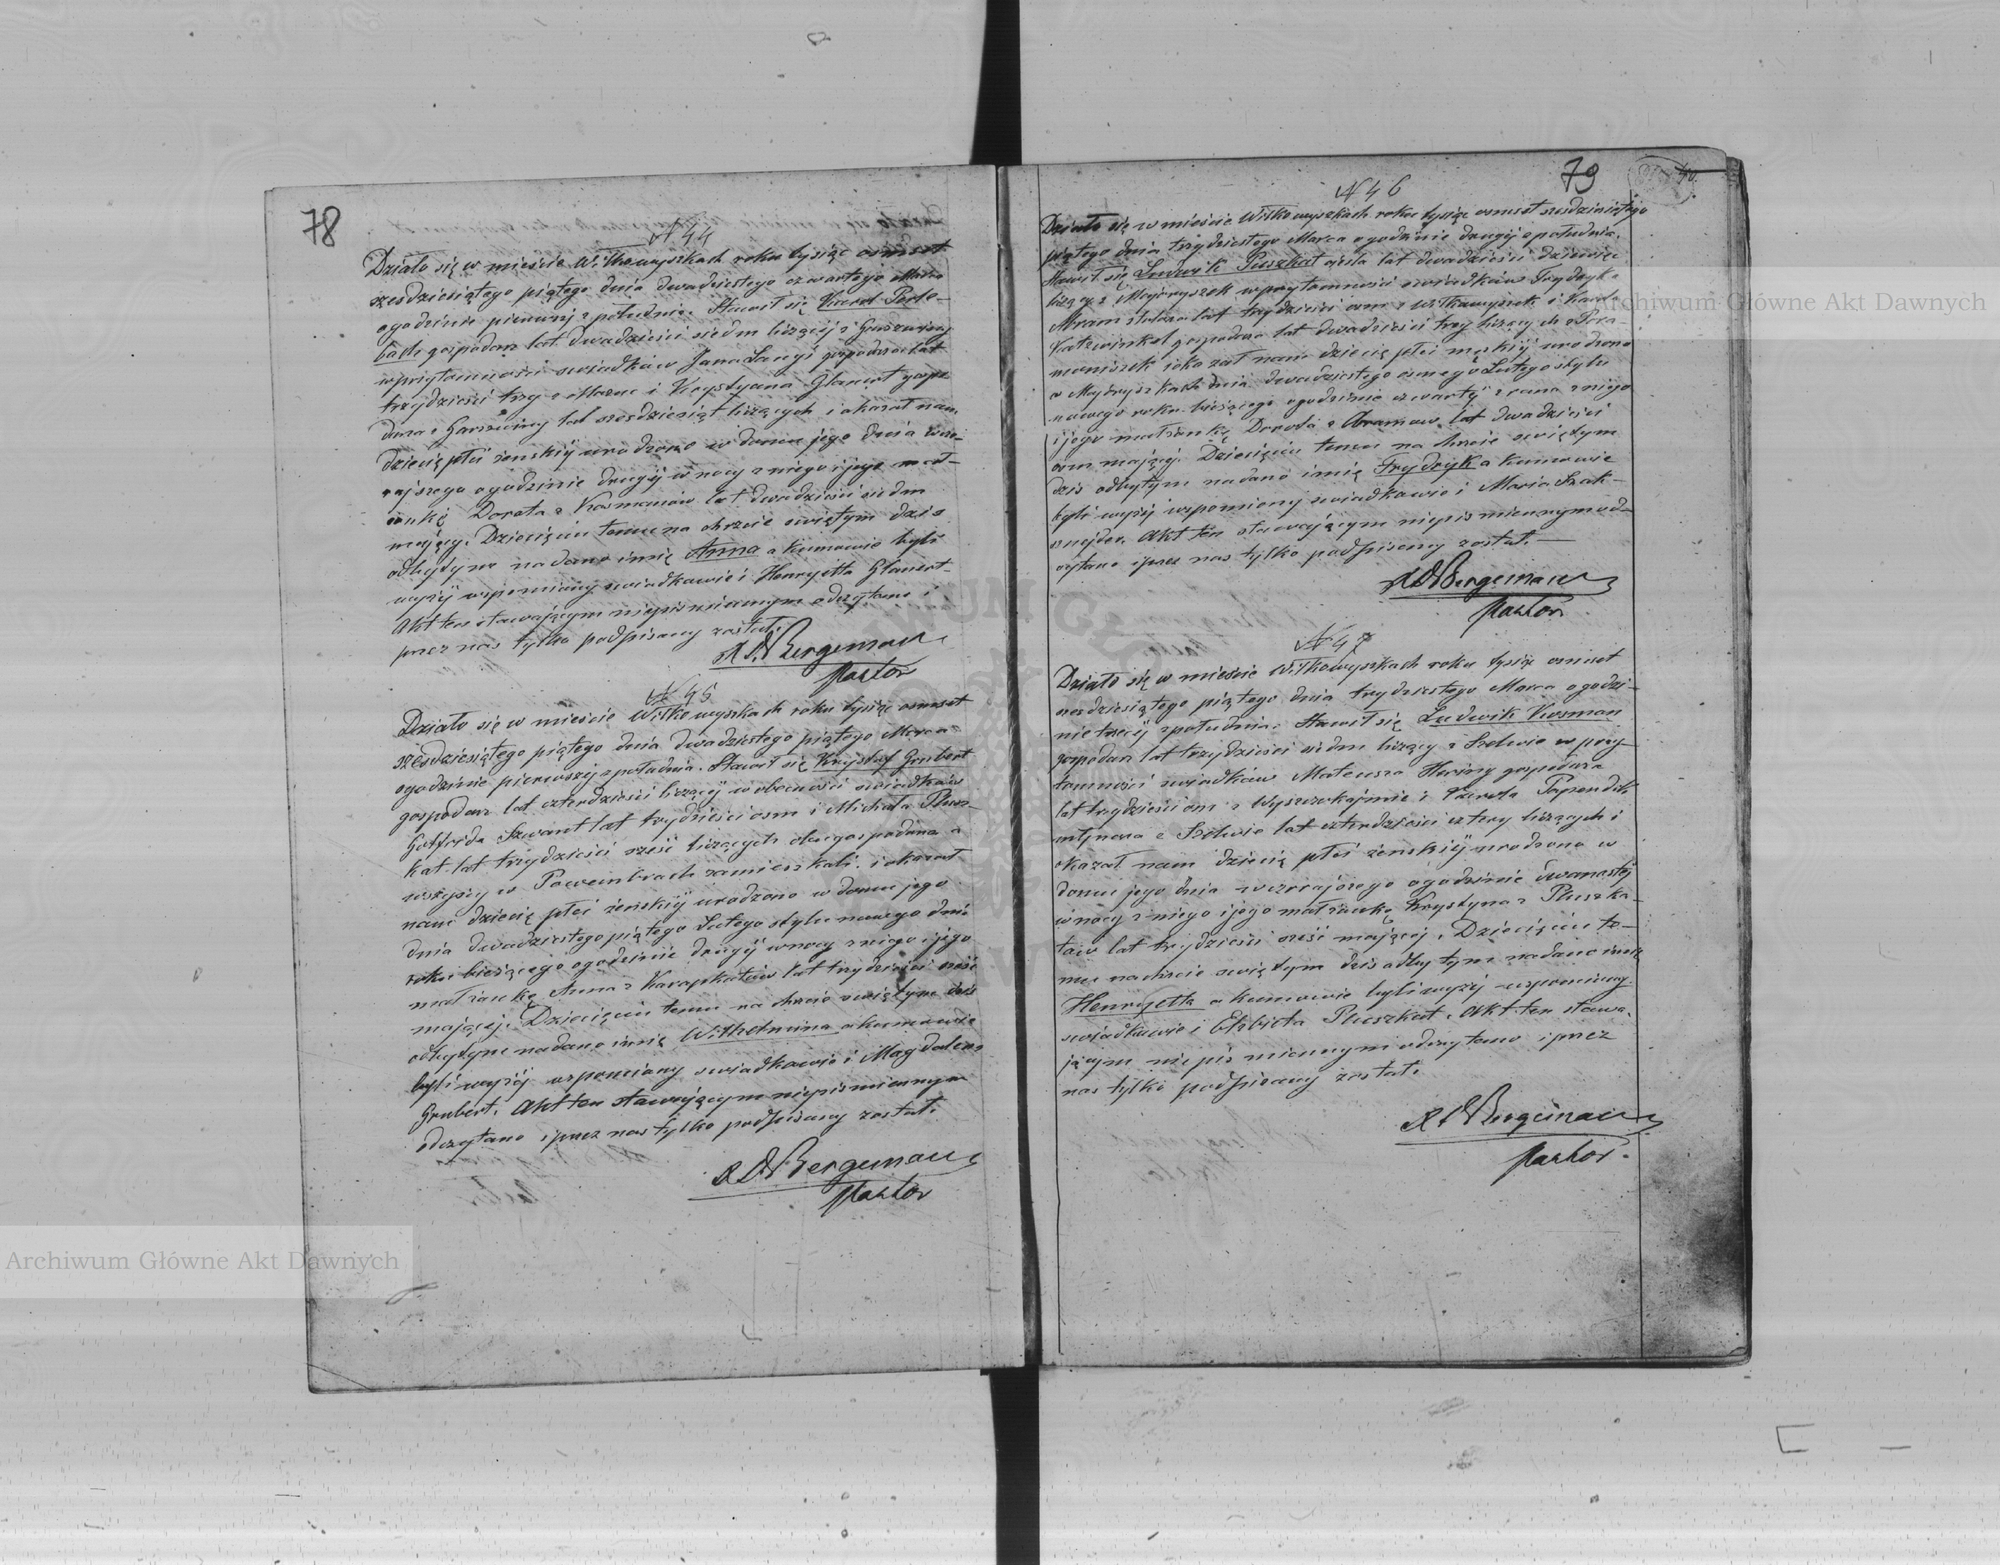 78
N 44
Działo się w mieście Wiłkowyszkach roku tysiąc osmset
szesdziesiątego piątego dnia dwadziestego czwartego Marca
ogodzinie pierwszy z południa. Stawił się Karol Perle-
bach gospodarz lat dwadzieści siedm liczący z
wprzytomności swiadków Jana gospodarza lat
trzydzieści trzy z i Krystyana Glanert gospo-
darza z lat szesdziesiąt liczących i okazał nam
dziecię płci żenskiy urodzone w domu jego dnia wczo-
rajszego ogodzinie drugiy w nocy z niego i jego mał-
żonkę Dorota z Kosmanów lat dwadzieści siedm
mający. Dziecięciu temu na chrzcie swiętym dzis
odbytym nadano imię Anna a kumowie byli
wyżÿ wspomniony swiadkowie i Henryetta Glanert.
Akt ten stawającym niepismiennym odczytano i
przez nas tylko podpisany został.
R. D. Bergemann
Pastor
N 45
Działo się w mieście Wiłkowyszkach roku tysiąc osmset
szesdziesiątego piątego dnia dwadziestego piątego Marca
ogodzinie pierwszÿ z południa. Stawił się Krystof Grubert
gospodarz lat czterdzieści liczącÿ w obecności swiadków
Gotfryda Szwant lat trzydzieści osm i Michała Plus-
kat lat trzydzieści sześć liczących oba gospodarza a
wszyscy w zamieszkali, i okazał
nam dziecię płci żenskiÿ urodzone w domu jego
dnia dwadziestego piątego Lutego stylu nowego dnia
roku bieżącego ogodzinie drugiÿ w nocy z niego i jego
małżonkę Anna z lat trzydzieści sześć
mającÿ. Dziecięciu temu na chrzcie swiętym dzis
odbytym nadano imię Wilhelmina a kumowie
byli wyżÿ wspomniany swiadkowie i Magdalena
Grubert. Akt ten stawającym niepismiennym
odczytano i przez nas tylko podpisany został.
R. D. Bergemann
Pastor
79
N 46
Działo się w mieście Wiłkowyszkach roku tysiąc osmset szesdziesiątego
piątego dnia trzydziestego Marca ogodzinie drugiÿ z południa.
Stawił się Ludwik Puszkat lat dwadzieści dziewięć
liczący z w przytomności swiadków Frydryka
Abram lat trzydzieści osm z Wiłkowyszek i Karla
Katzwinkel gospodarza lat dwadzieści trzy liczących z
i okazał nam dziecię płci męskiÿ urodzone
w dnia dwadziestego osmego Lutego stylu
nowego roku bieżącego ogodzinie czwartÿ z rana z niego
i jego małżonkę Dorota z Abramow lat dwadzieści
osm mającÿ. Dziecięciu temu na chrzcie swiętym
dzis odbytym nadano imię Frydryk a kumowie
byli wyżÿ wspomniony swiadkowie i Maria Szat-
snejder. Akt ten stawającym niepismiennym od-
czytano i przez nas tylko podpisany został.
R. D. Bergemann
Pastor.
N 47
Działo się w mieście Wiłkowyszkach roku tysiąc osmset
szesdziesiątego piątego dnia trzydziestego Marca ogodzi-
nie trzeciÿ z południa. Stawił się Ludwik Kosman
gospodarz lat trzydzieści siedm liczący z w przy-
tomności swiadków Mateusza gospodarza
lat trzydzieści osm z i Karola Papendik
młynarza z lat czterdzieści cztery liczących i
okazał nam dziecię płci żenskiÿ urodzone w
domu jego dnia wczorajszego ogodzinie dwanastÿ
w nocy z niego i jego małżonkę Krystyna z Pluszka-
tow lat trzydzieści sześć mającej. Dziecięciu te-
mu na chrzcie swiętym dzis odbytym nadano imię
Henryetta a kumowie byli wyżÿ wspomniony
swiadkowie i Elzbieta Pluszkat. Akt ten stawa-
jącym niepismiennym odczytano i przez
nas tylko podpisany został.
R. D. Bergemann
Pastor.
Archiwum Główne Akt Dawnych
Archiwum Główne Akt Dawnych